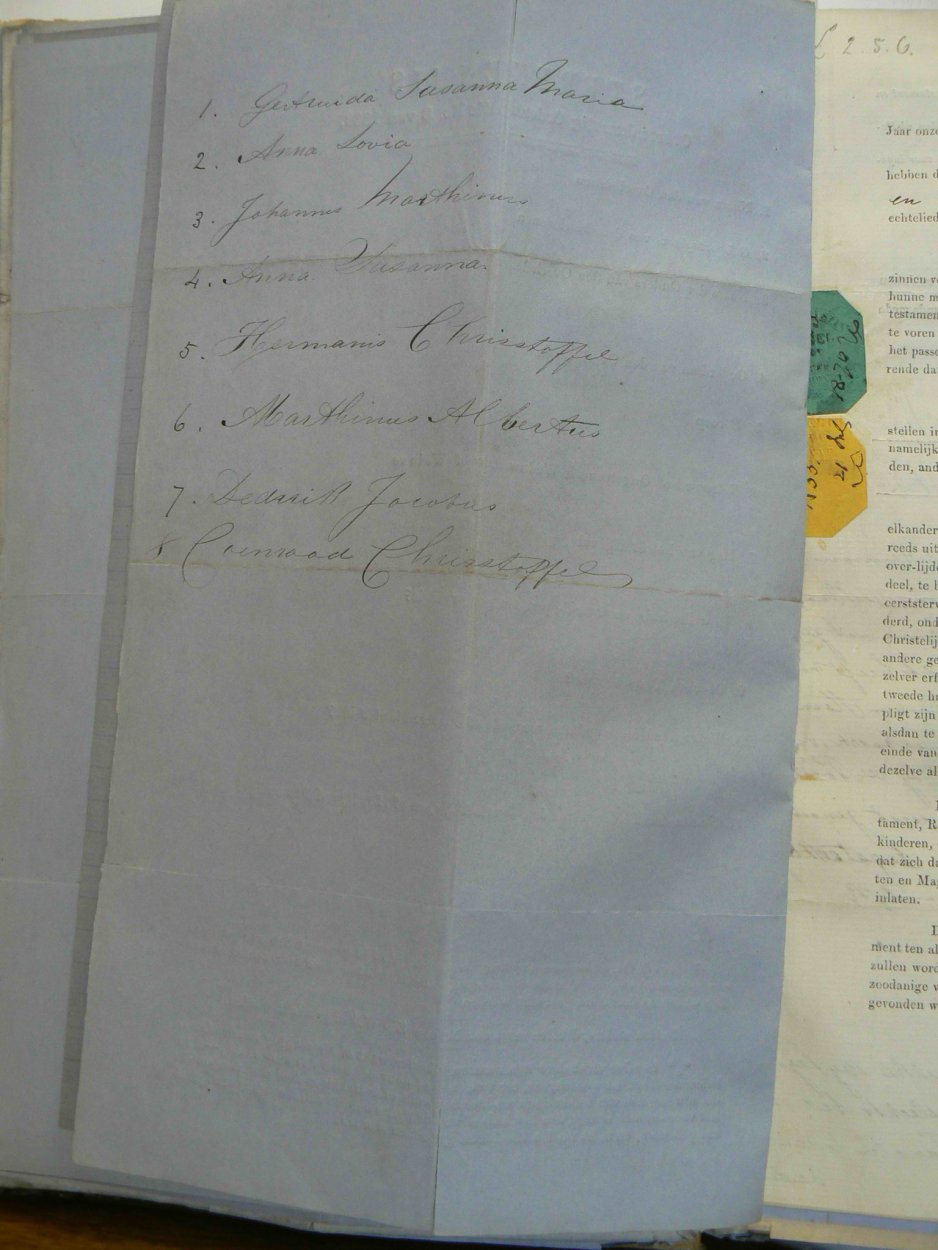 1. Gertruida Susanna Maria
2. Anna Sovia
3. Johannes Marthinus
4. Anna Susanna.
5. Hermanis Chrisstoffel
6. Marthinus Albertus
7. Dedrik Jacobus
8 Coenraad Chrisstoffel
£ 2. 5. 6.
Jaar onze
hebben d
en
echtelied
zinnen v
hunne m
testamen
te voren
het passe
rende da
stellen in
namelijk
den, and
elkander
reeds uit
over-lijde
deel, te h
eerststerv
derd, ond
Christelij
andere ge
zelver erf
tweede hu
pligt zijn
alsdan te
einde van
dezelve al
tament, R
kinderen,
dat zich da
ten en Ma
inlaten.
ment ten al
zullen word
zoodanige v
gevonden w